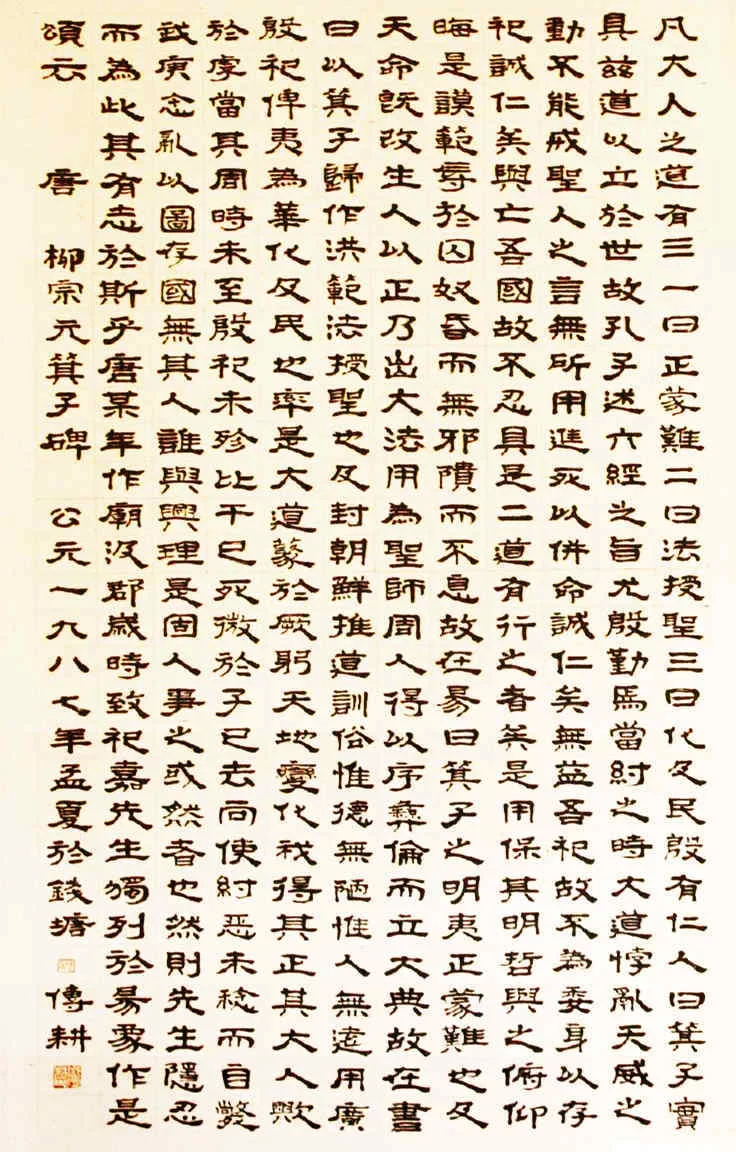 凡大人之道有三一曰正蒙難二曰法授聖三曰化及民殷有仁人曰箕子實
具茲道以立於世故孔子述六經之旨尤殷勤焉當紂之時大道悖亂天威之
動不能戒聖人之言無所用進死以併命誠仁矣無益吾祀故不為委身以存
祀誠仁矣與亡吾國故不忍具是二道有行之者矣是用保其明哲與之俯仰
晦是謨範辱於囚奴昏而無邪隤而不息故在易曰箕子之明夷正蒙難也及
天命既改生人以正乃出大法用為聖師周人得以序彝倫而立大典故在書
曰以箕子歸作洪範法授聖也及封朝鮮推道訓俗惟德無陋惟人無遠用廣
殷祀俾夷為華化及民也率是大道藂於厥躬天地變化我得其正其大人歟
於虖當其周時未至殷祀未殄比干已死微於子已去向使紂惡未稔而自斃
武庚念亂以圖存國無其人誰與興理是固人事之或然者也然則先生隱忍
而為此其有志於斯乎唐某年作廟汲郡歲時致祀嘉先生獨列於易象作是
頌云 唐 柳宗元箕子碑 公元一九八七年孟夏於錢塘 傳耕